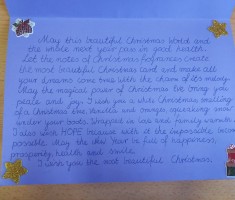 May this beautiful Christmas World and
the whole next year pass in good health.
Let the notes of Christmas fragrances create
the most beautiful Christmas card and make all
your dreams come true with the charm of its melody.
May the magical power of Christmas Eve bring you
peace and joy. I wish you a white Christmas smelling
of a Christmas tree, vanilla and oranges, squeaking snow
under your boots. Wrapped in love and family warmth.
I also wish HOPE because with it the impossible becomes
possible. May the New Year be full of happiness,
prosperity, health and smile.
I wish you the most beautiful Christmas.